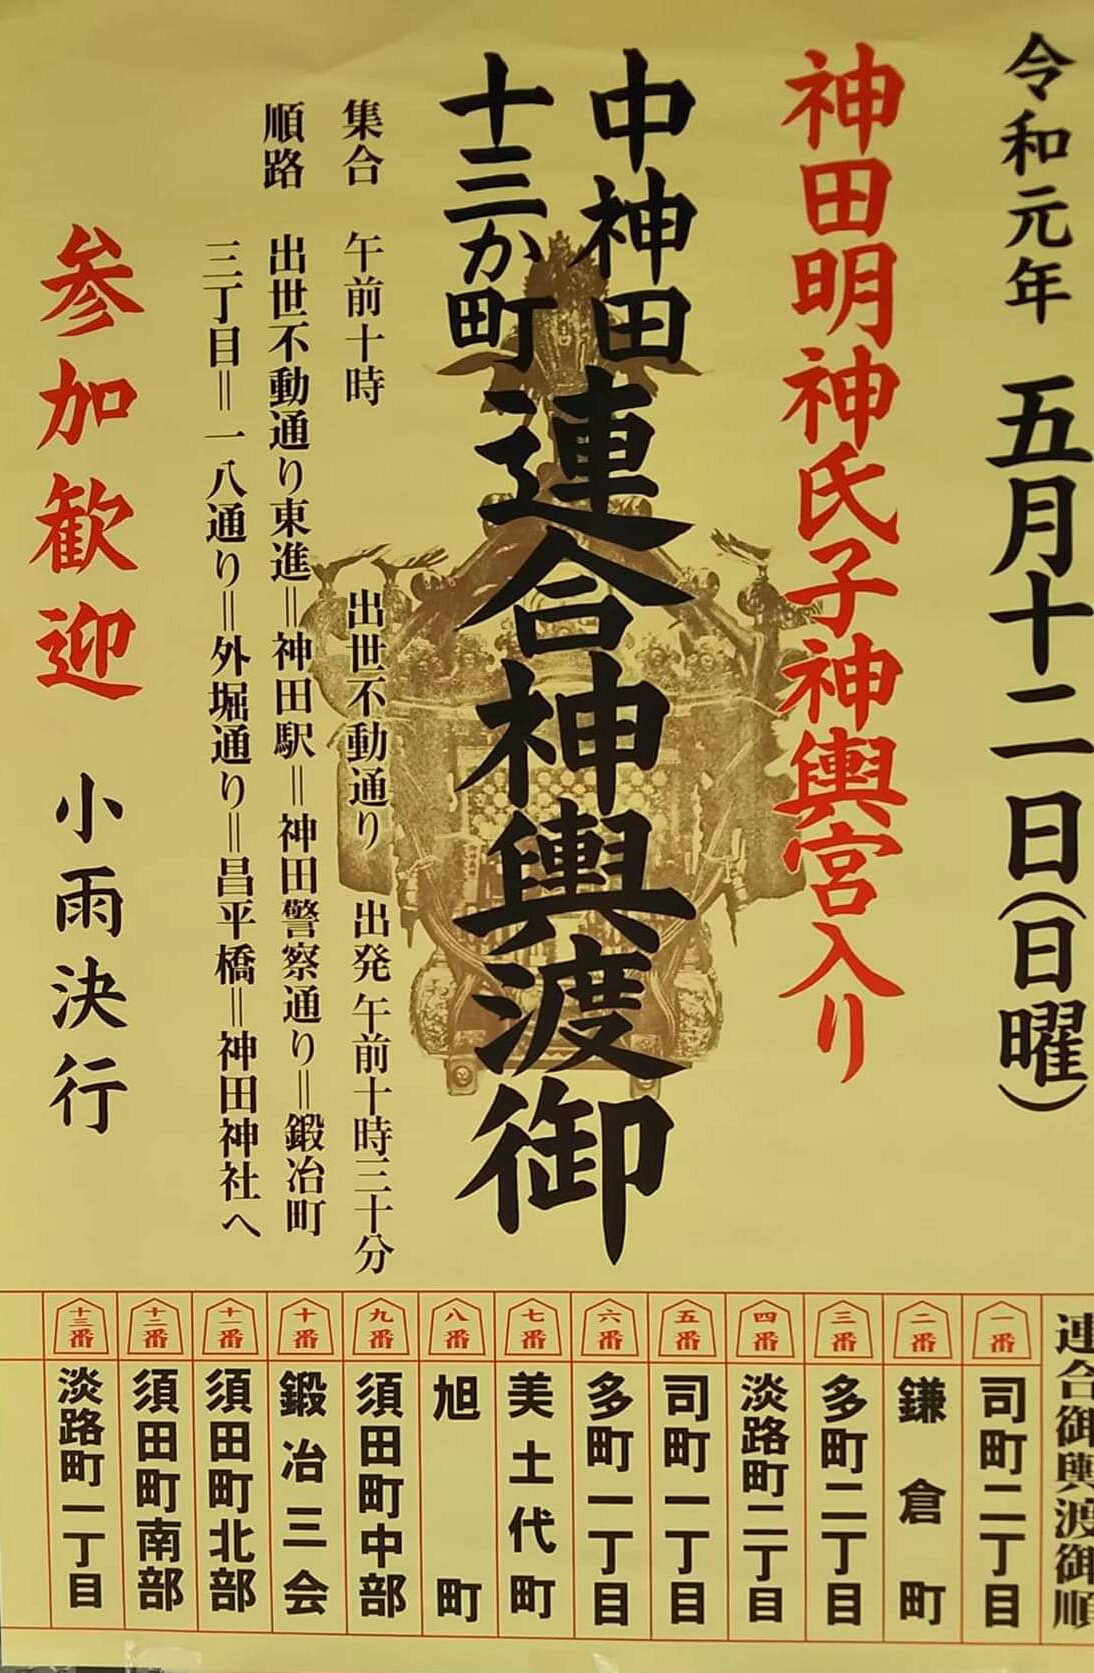 令和元年 五月十二日(日曜)
神田明神氏子神輿宮入り
中神田
十三か町
連合神輿渡御
集合 午前十時 出世不動通り 出発午前十時三十分
順路 出世不動通り東進=神田駅=神田警察通り=鍛冶町
三丁目=一八通り=外堀通り=昌平橋=神田神社へ
参加歓迎 小雨決行
連合御輿渡御順
一番 司町二丁目
二番 鎌倉町
三番 多町二丁目
四番 淡路町二丁目
五番 司町一丁目
六番 多町一丁目
七番 美土代町
八番 旭町
九番 須田町中部
十番 鍛冶三会
十一番 須田町北部
十二番 須田町南部
十三番 淡路町一丁目